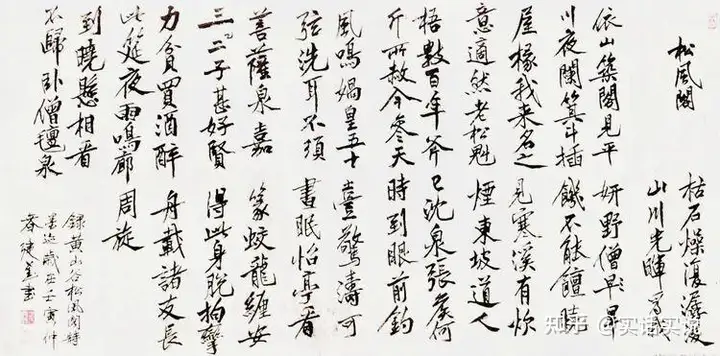 松風閣
依山築閣見平
川夜闌箕斗插
屋椽我来名之
意適然老松魁
梧數百年斧
斤所赦今參天
風鳴媧皇五十
弦洗耳不須
菩薩泉嘉
三二子甚好賢
力貧買酒醉
此筵夜雨鳴廊
到曉懸相看
不歸卧僧氈泉
枯石燥復潺湲
山川光暉為我
妍野僧早旱
饑不能饘曉
見寒溪有炊
煙東坡道人
已沈泉張侯何
時到眼前釣
臺驚濤可
晝眠怡亭看
篆蛟龍纏安
得此身脱拘攣
舟載諸友長
周旋
錄黄山谷松風閣詩
墨迹歲在壬寅仲
春建書
知乎